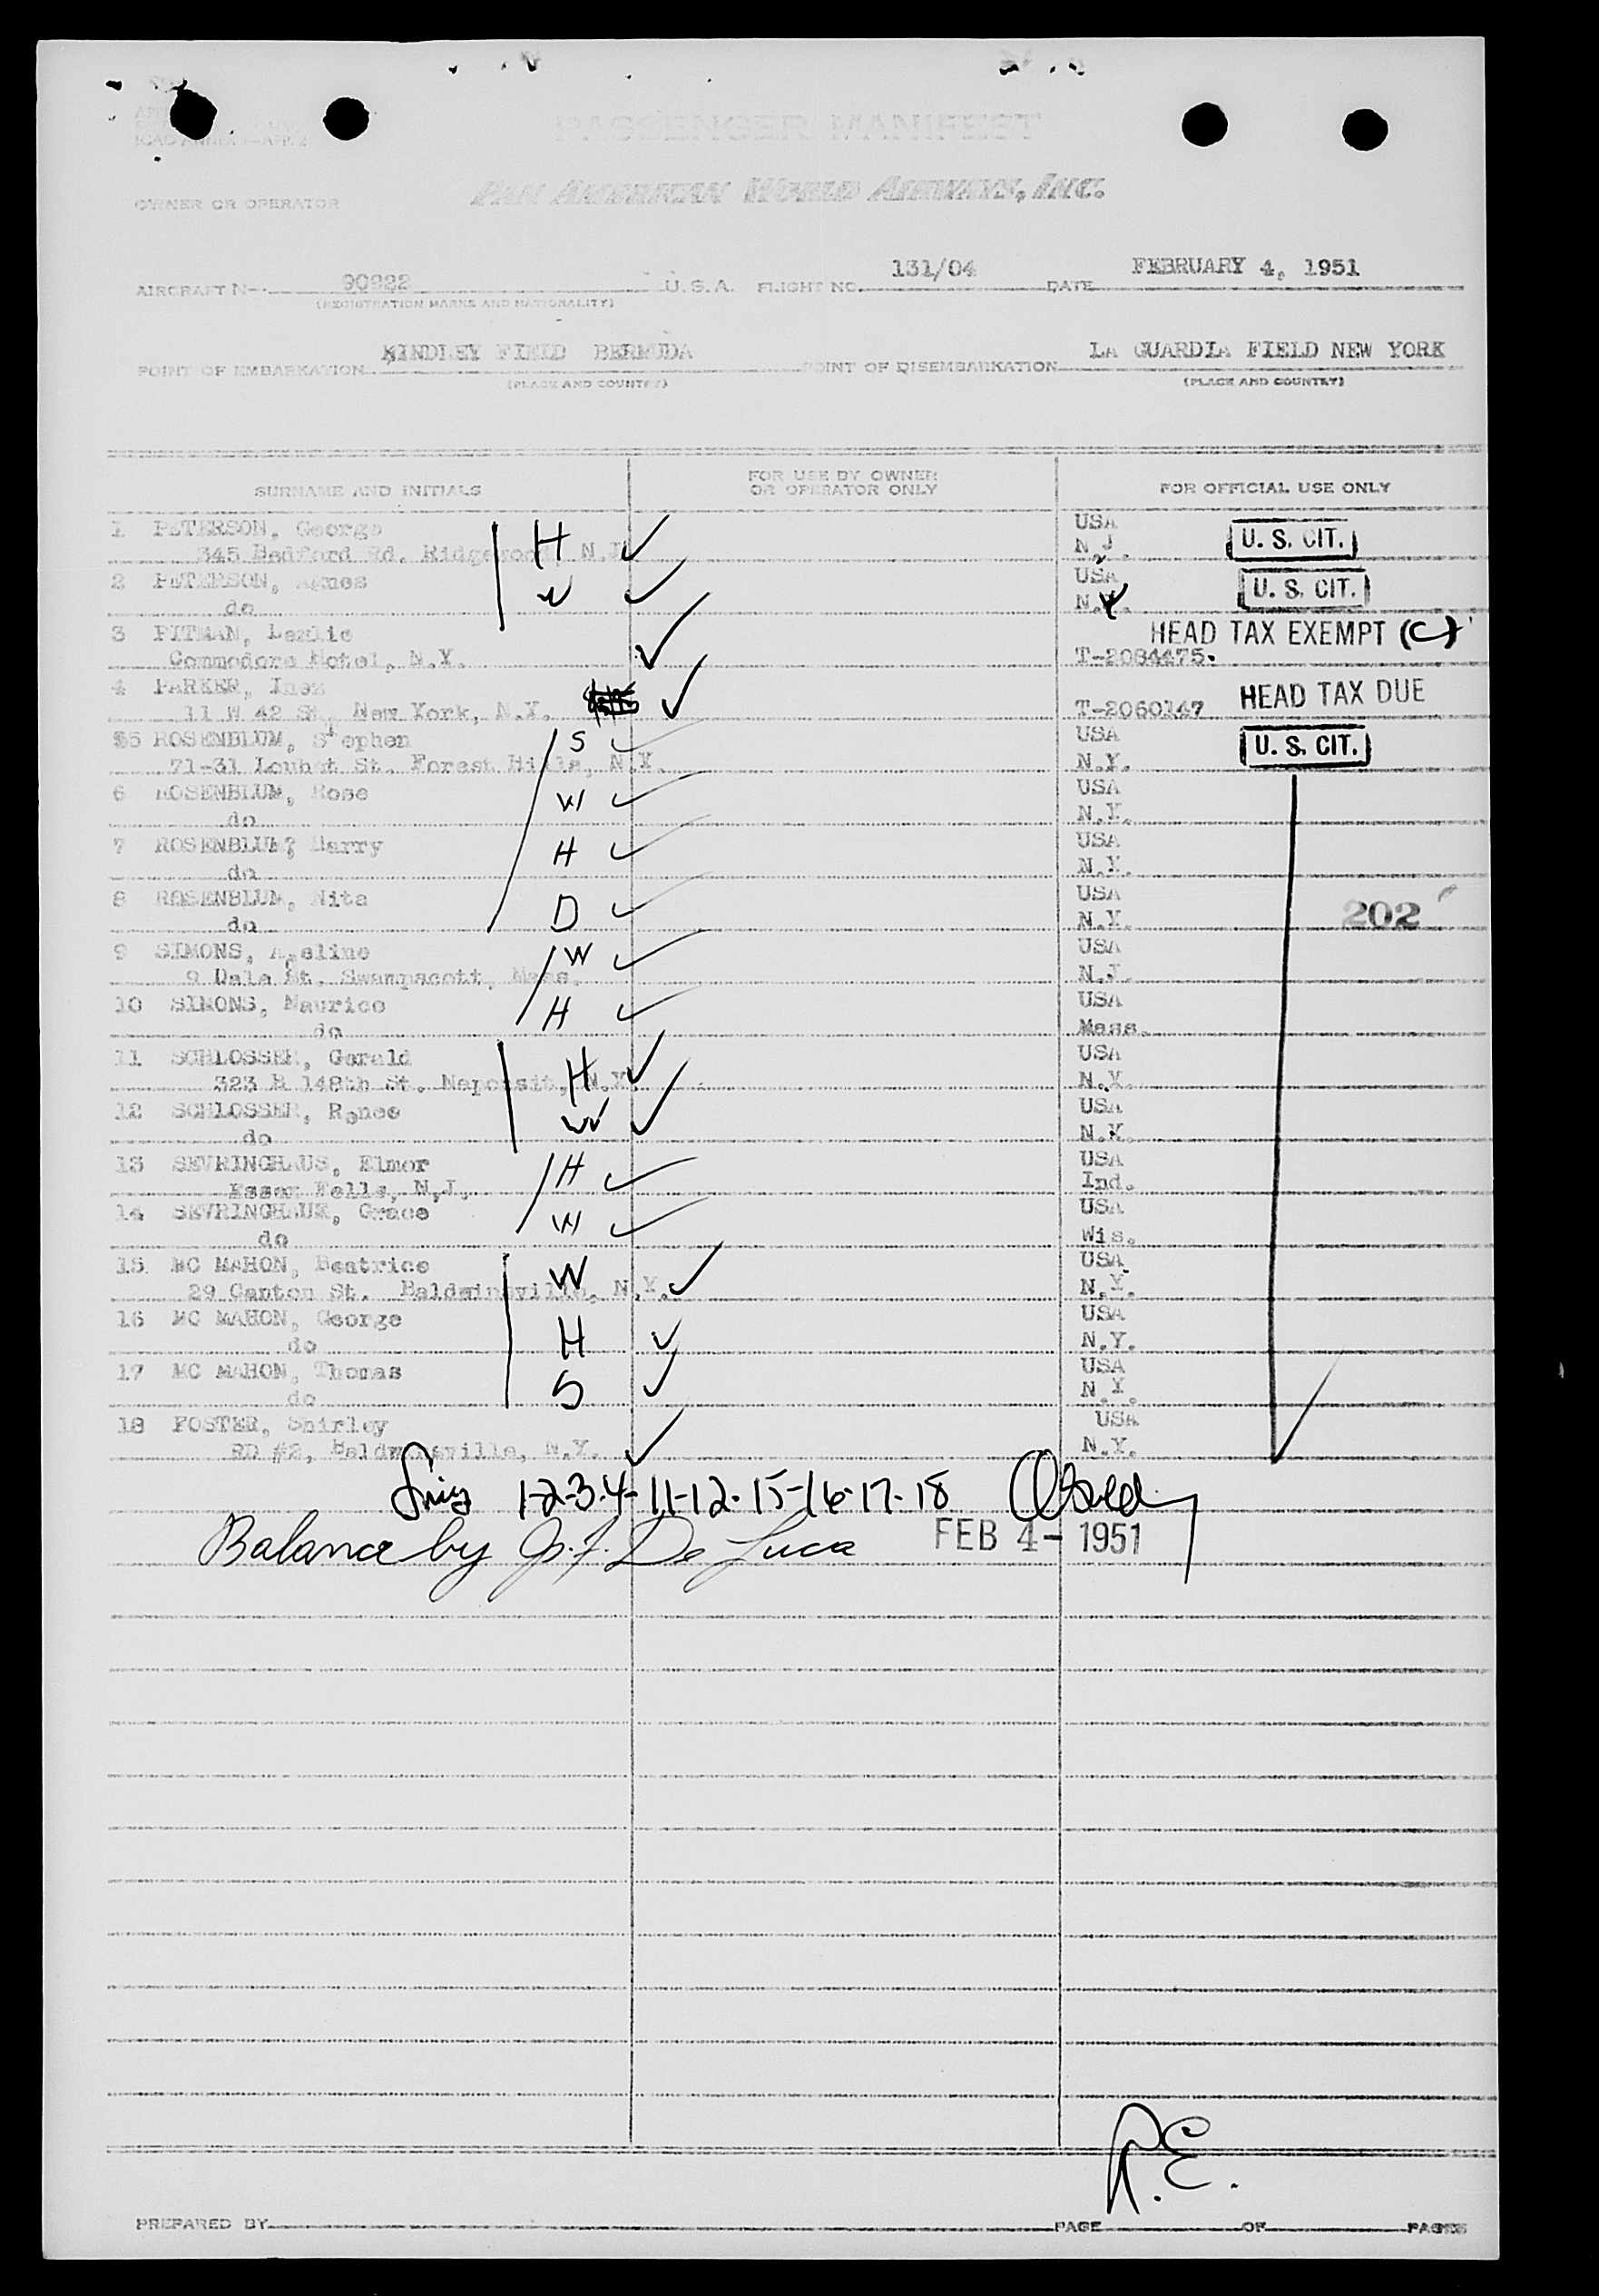 PASSENGER MANIFEST
OWNER OR OPERATOR PAN AMERICAN WORLD AIRWAYS, INC.
AIRCRAFT N-. 90922 U.S.A. FLIGHT NO. 131/04 DATE FEBRUARY 4, 1951
(REGISTRATION MARKS AND NATIONALITY)
POINT OF EMBARKATION KINDLEY FIELD BERMUDA POINT OF DISEMBARKATION LA GUARDIA FIELD NEW YORK
(PLACE AND COUNTRY) (PLACE AND COUNTRY)
SURNAME AND INITIALS FOR USE BY OWNER OR OPERATOR ONLY FOR OFFICIAL USE ONLY
1 PETERSON, George H USA U. S. CIT.
345 Bedford Rd. Ridgewood, N.J. N.J.
2 PETERSON, Agnes W USA U. S. CIT.
do N.Y.
3 PITMAN, Leslie HEAD TAX EXEMPT (C)
Commodore Hotel, N.Y. T-2084475.
4 PARKER, Inez HEAD TAX DUE
11 W 42 St. New York, N.Y. T-2060147
5 ROSENBLUM, Stephen S USA U. S. CIT.
71-31 St. Forest Hills, N.Y. N.Y.
6 ROSENBLUM, Rose W USA
do N.Y.
7 ROSENBLUM, Harry H USA
do N.Y.
8 ROSENBLUM, Nita D USA 202
do N.Y.
9 SIMONS, W USA
9 Dale St. Swampscott, Mass. N.J.
10 SIMONS, Maurice H USA
do Mass.
11 SCHLOSSER, Gerald H USA
323 B 148th St. Neponsit, N.Y. N.Y.
12 SCHLOSSER, Renee W USA
do N.Y.
13 SEVRINGHAUS, Elmer H USA
Essex Fells, N.J. Ind.
14 SEVRINGHAUS, Grace W USA
do Wis.
15 MC MAHON, Beatrice W USA
29 Canton St. Baldwinsville, N.Y. N.Y.
16 MC MAHON, George H USA
do N.Y.
17 MC MAHON, Thomas S USA
do N.Y.
18 FOSTER, Shirley USA
RD #2, Baldwinsville, N.Y. N.Y.
1-2-3-4-11-12-15-16-17-18
Balance by J. F. De Luca FEB 4 - 1951
R.E.
PREPARED BY PAGE OF PAGES